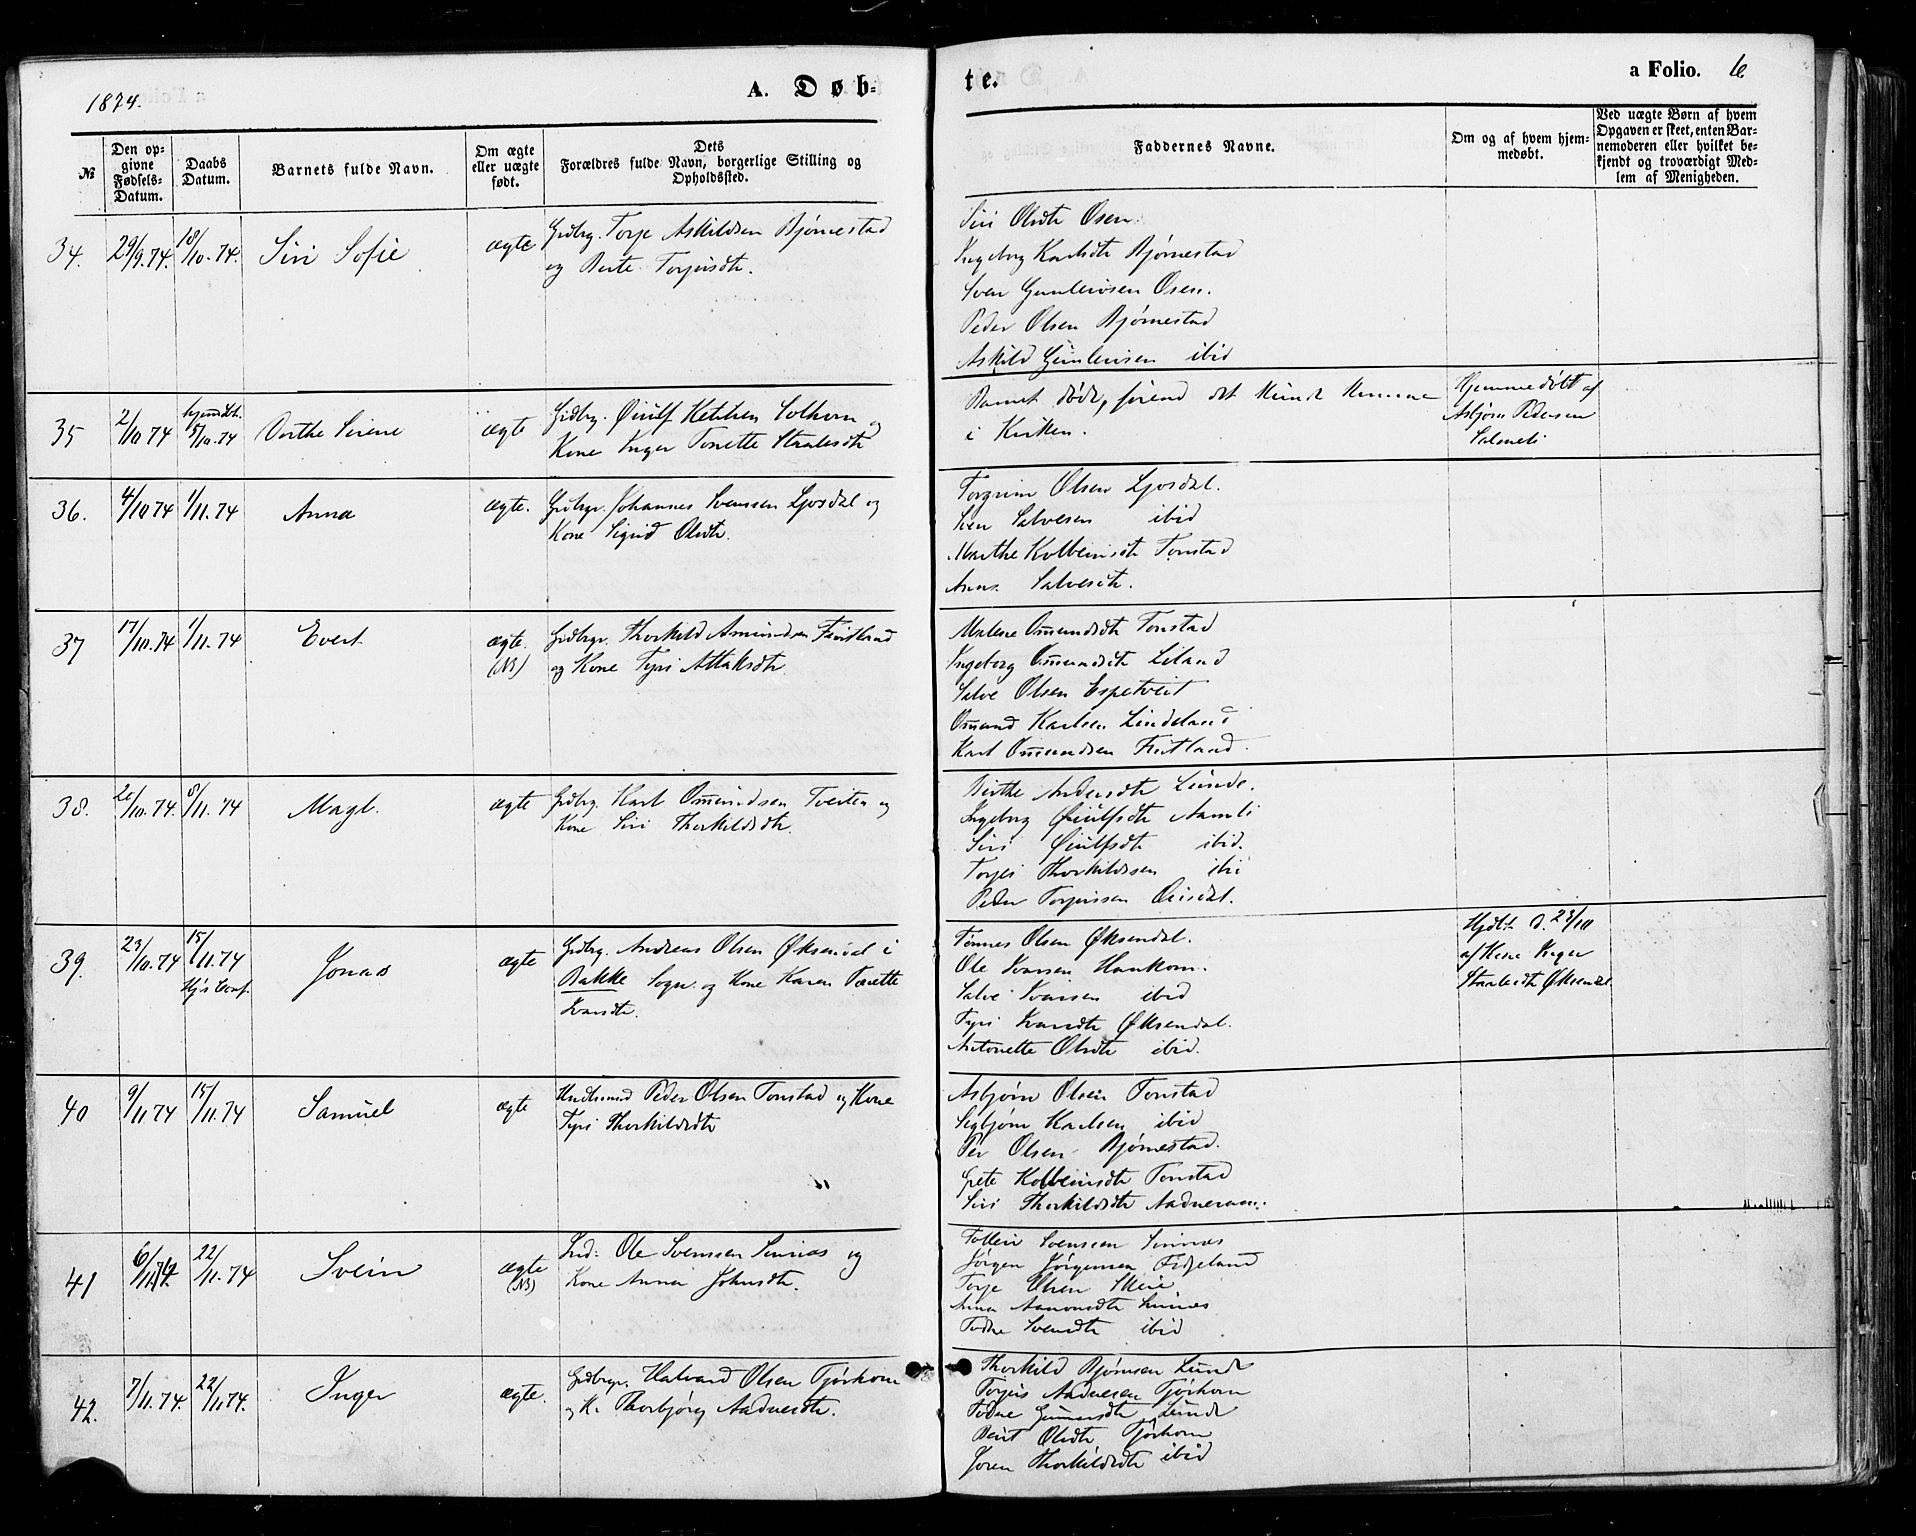 1874.
A. Døb-
te.
a Folio. 6
№
Den op-
givne
Fødsels-
Datum.
Daabs
Datum.
Barnets fulde Navn.
Om ægte
eller uægte
født.
Dets
Forældres fulde Navn, borgerlige Stilling og
Opholdssted.
Faddernes Navne.
Om og af hvem hjem-
medøbt.
Ved uægte Børn af hvem
Opgaven er skeet, enten Bar-
nemoderen eller hvilket be-
kjendt og troværdigt Med-
lem af Menigheden.
34. 29/9.74. 18/10.74. Siri Sofie ægte Grdbrg. Torje Askildsen Bjørnestad
og Berte Torjusdtr.
Siri Olsdtr Osen.
Ingeborg Karlsdtr Bjørnestad
Sven Gunleivsen Osen.
Peder Olsen Bjørnestad
Askild Gunleivsen ibid
35 2/10 74 hjemdbt. 5/10.74 Dorthe Serene ægte Grdbrg. Øiulf Ketilsen Solhom og
Kone Inger Tonette Staalesdtr
Barnet døde, førend det kunde komme
i Kirken.
Hjemmedøbt af
Asbjørn Pedersen
Salmeli
36. 4/10 74 1/11.74 Anna ægte. Grdbrgr. Johannes Svenssen Ljosdal og
Kone Sigrid Olsdtr.
Torgrim Olsen Ljosdal.
Sven Salvesen ibid
Marthe Kolbeinsdtr Tonstad
Anna Salvesdtr.
37 17/10.74 1/11.74 Evert ægte.
(NB) Grdbrgr. Thorkild Amundsen Fintland
og Kone Tyri Atlaksdtr.
Malene Omundsdtr Tonstad
Ingeborg Omundsdtr Liland
Salve Olsen Espetveit
Omund Karlsen Lindeland
Karl Omundsen Fintland.
38. 20/10.74. 8/11.74 Magl. ægte Grdbrg. Karl Omundsen Tveiten og
Kone Siri Thorkildsdtr.
Birthe Andersdtr Lunde.
Ingeborg Øiulfsdtr Aamli
Siri Øiulfsdtr ibid.
Torjei Thorkildsen ibid
Peder Torjussen Ousdal.
39. 23/10.74 15/11.74 Jonas ægte Grdbrg. Andreas Olsen Øksendal i
Bakke Sogn og Kone Karen Tonette
Ivarsdtr.
Tønnes Olsen Øksendal.
Ole Ivarsen Haukom.
Salve Ivarsen ibid
Tyri Ivarsdtr Øksendal.
Antonette Olsdtr ibid.
Hjdbt. d. 23/10
af Kone Inger
Staalesdtr Øksendal
40 9/11 74 15/11.74 Samuel ægte Peder Olsen Tonstad og Kone
Tyri Thorkildsdtr
Asbjørn Olsen Tonstad
Sigbjørn Karlsen ibid
Per Olsen Bjørnestad.
Grete Kolbeinsdtr Tonstad
Siri Thorkildsdtr Aadneram.
41 6/11 74. 22/11.74 Svein ægte
(NB) Ind: Ole Svenssen Sinnes og
Kone Anna Johnsdtr.
Tolleiv Svenssen Sinnes
Jørgen Jørgensen Fidjeland
Torje Olsen
Anna Aanonsdtr Sinnes
Todne Svensdtr ibid
42. 7/11.74. 22/11.74. Inger ægte. Grdbrgr. Halvard Olsen Tjørhom
og K. Thorbjørg Aadnesdtr.
Thorkild Bjørnsen Lunde
Torjus Aadnesen Tjørhom
Todne Gunnarsdtr Lunde
Berit Olsdtr Tjørhom
Joren Thorkildsdtr ibid